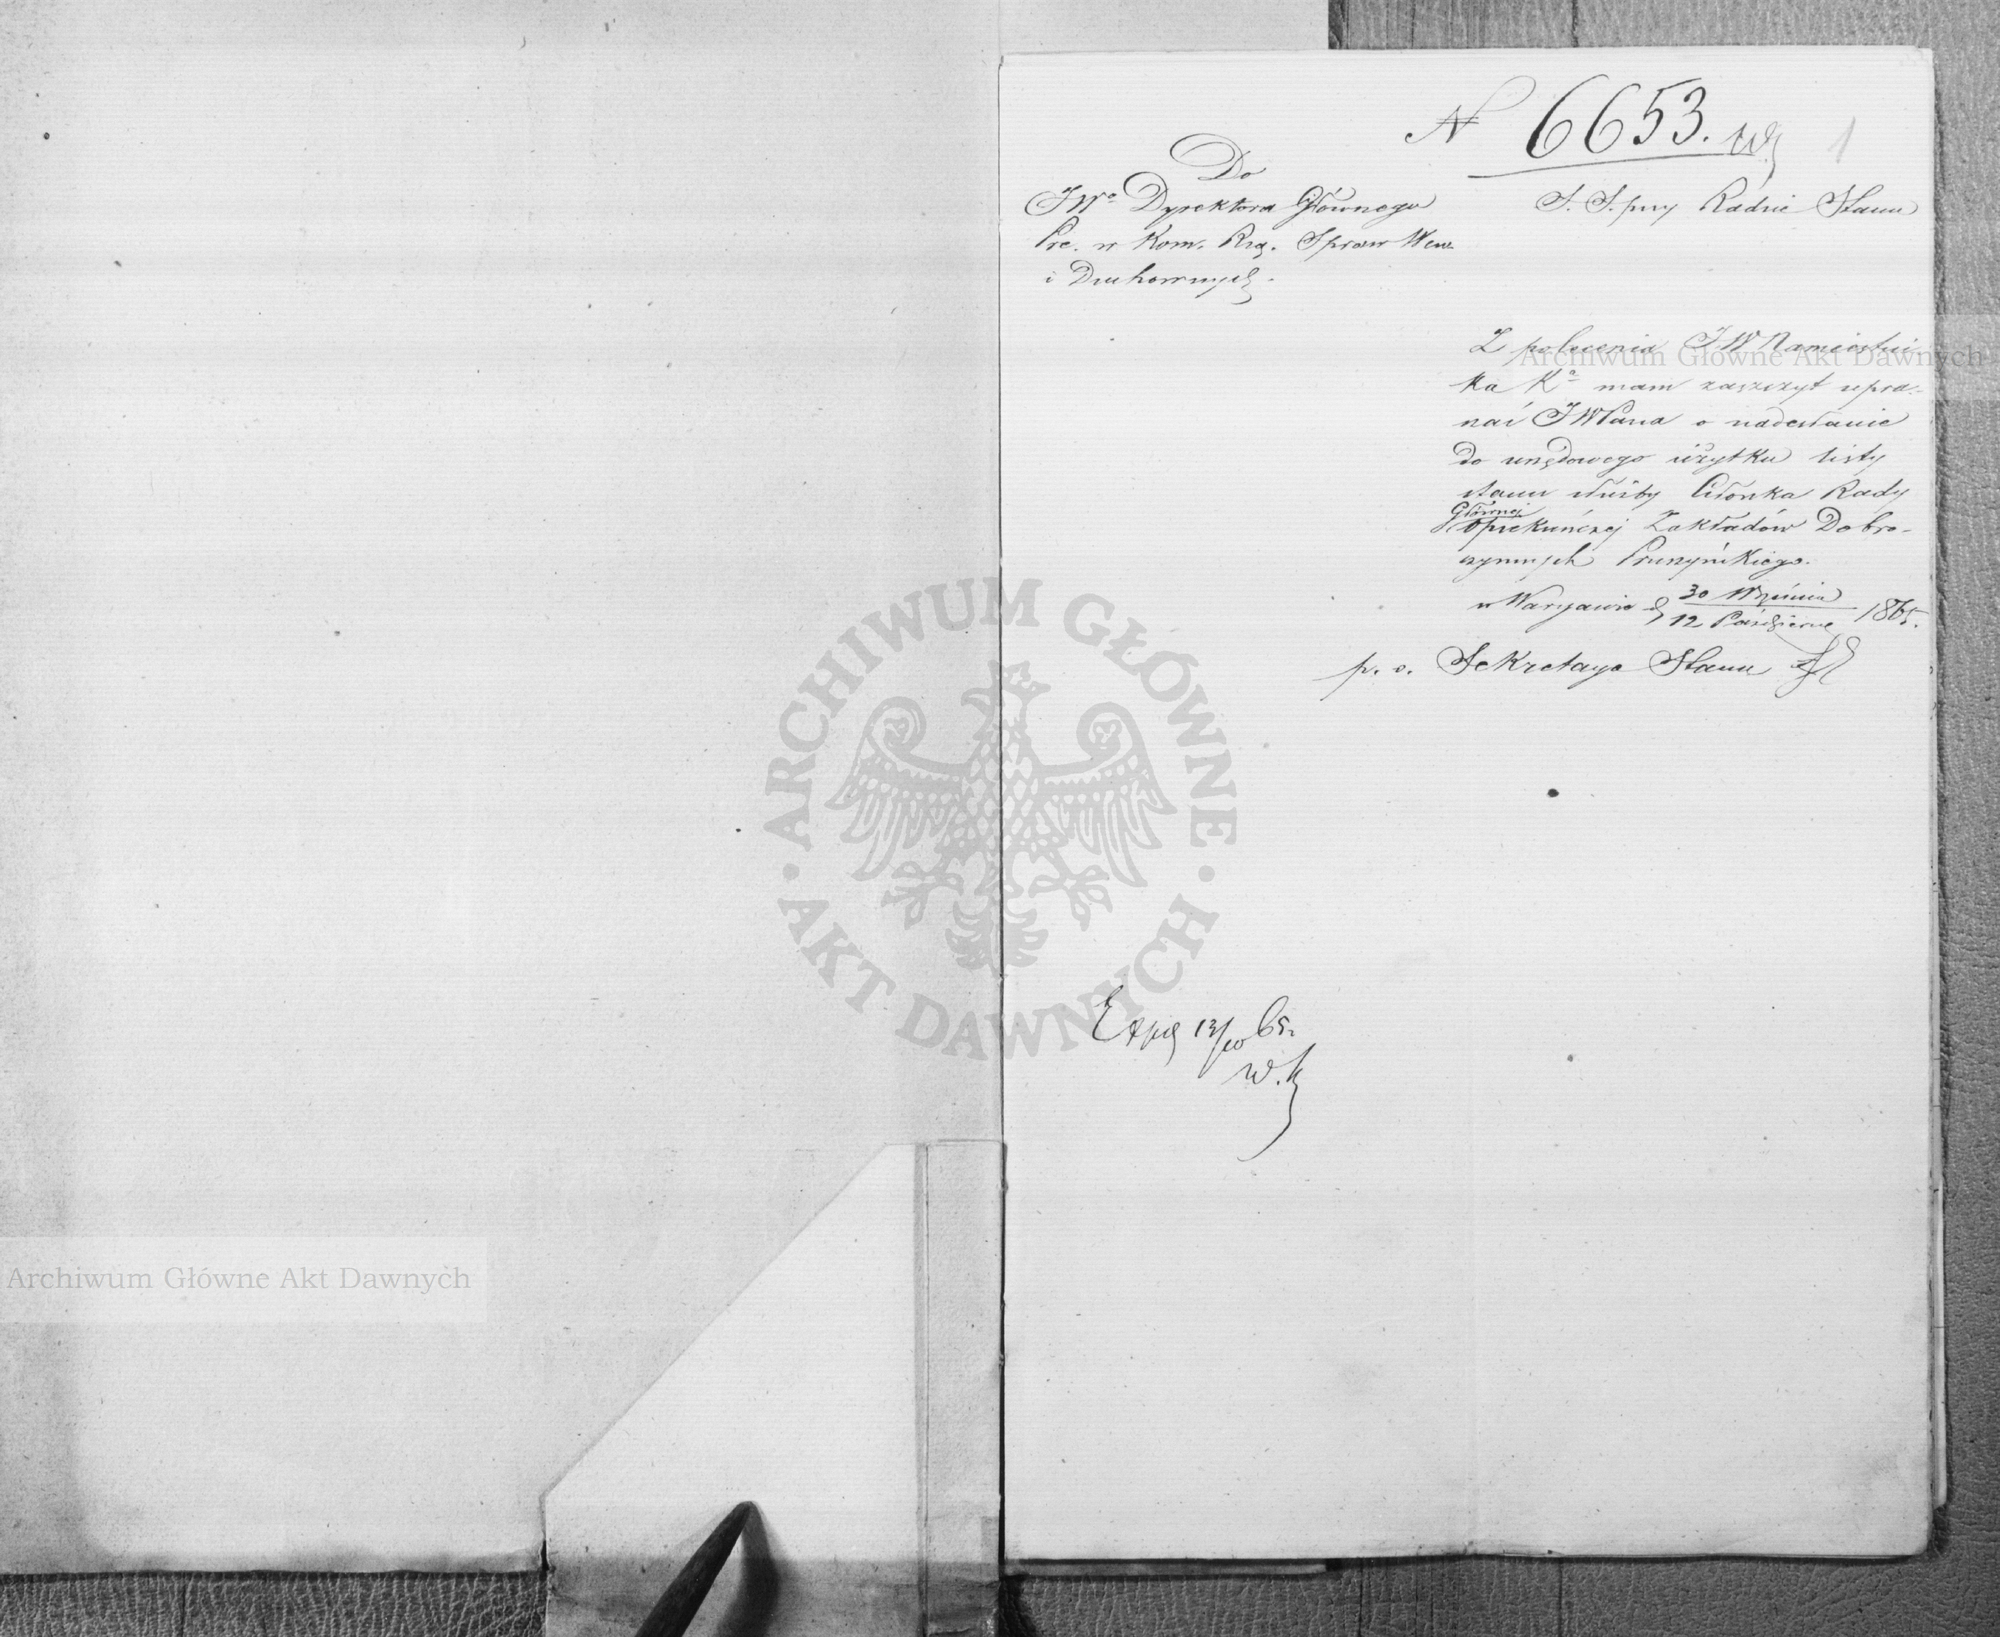 N 6653.
1
Do
JWo Dyrektora Głównego
Pre. w Kom. Rzą. Spraw Wew.
i Duchownych.
S. S. przy Radzie Stanu
Z polecenia JW Namiestni-
ka Ka mam zaszczyt upra-
szać JWPana o nadesłanie
do urzędowego użytku listy
stanu służby Członka Rady
Głównej
Opiekuńczej Zakładów Dobro-
czynnych Pruszyńskiego.
w Warszawie d 30 Września 1865.
12 Październ
p. o. Sekretarza Stanu
Exp 13/10 65
W. K
ARCHIWUM GŁÓWNE AKT DAWNYCH
Archiwum Główne Akt Dawnych
Archiwum Główne Akt Dawnych